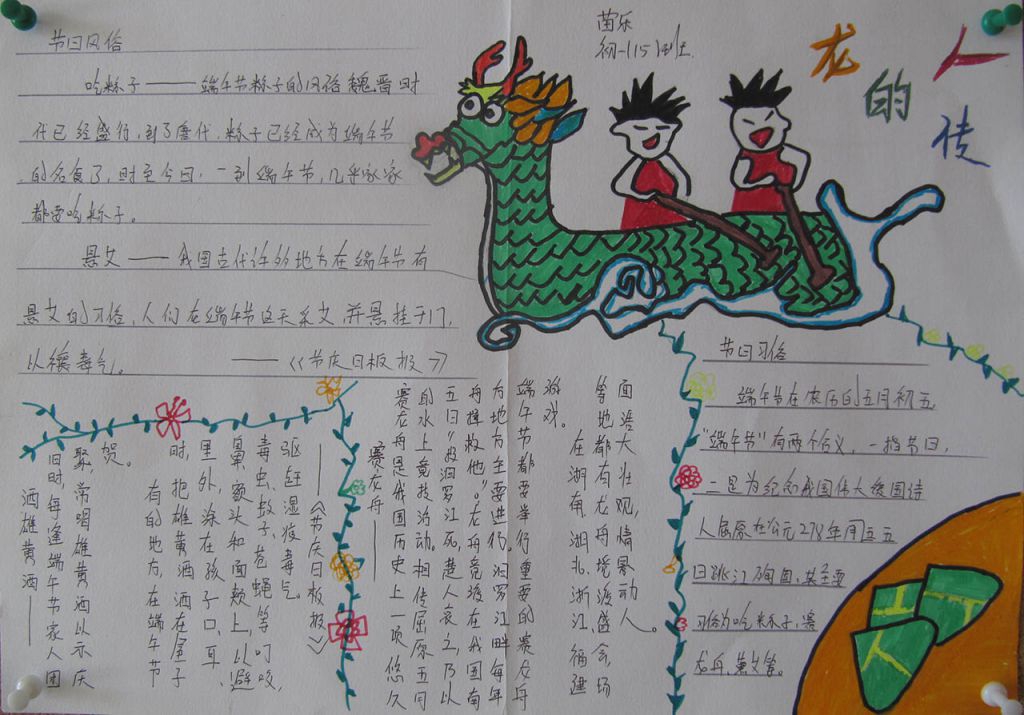 节日风俗
吃粽子——端午节粽子的风俗魏晋时
代已经盛行,到了唐代,粽子已经成为端午节
的名食了,时至今日,一到端午节,几乎家家
都要吃粽子。
悬艾——我国古代许多地方在端午节有
悬艾的习俗,人们在端午节这天采艾并悬挂于门,
以禳毒气。——《节庆日板报》
菌乐
初一(15)班
龙的
传人
节日习俗
端午节在农历的五月初五
"端午节"有两个含义,一指节日,
二是为纪念我国伟大爱国诗
人屈原在公元278年用五五
日跳江殉国,其主要
习俗为吃粽子,赛
龙舟,熏艾等。
赛龙舟——
赛龙舟是我国历史上一项悠久
的水上竞技活动。相传屈原五月
五日"投汨罗江死,楚人哀之,乃以
舟楫救他。"龙舟竞渡在我国南
方地方主要进行。汨罗江畔每年
端午节都要举行重要的赛龙舟
游戏。
在湖南、湖北、浙江、福建
等地都有龙舟竞渡盛会,场
面浩大壮观,情景动人。
酒雄黄酒——
旧时,每逢端午节家人团
聚,常喝雄黄酒以示庆
贺。
有的地方,在端午节
时,把雄黄酒洒在屋子
里外,涂在孩子口、耳、
鼻、额头和面颊上,以避
毒虫、蚊子、苍蝇等叮咬,
驱赶湿疫毒气。
——《节庆日板报》